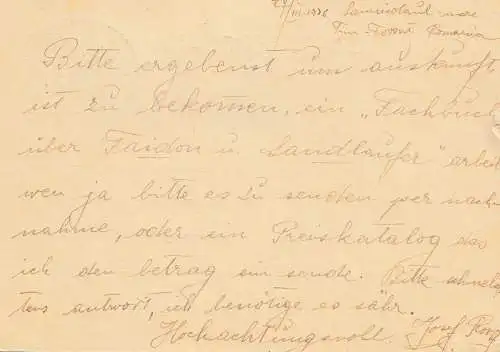 Sannicolaul mare
Bitte ergebenst um auskunft
ist zu bekommen, ein "Fachbuch
über Faidon u. Landläufer" arbei
wen ja bitte es zu senden per nach
nahme, oder ein Preiskatalog das
ich den betrag ein sende. Bitte schnels
tens antwort, ich benötige es sähr.
Hochachtungsvoll. Josef